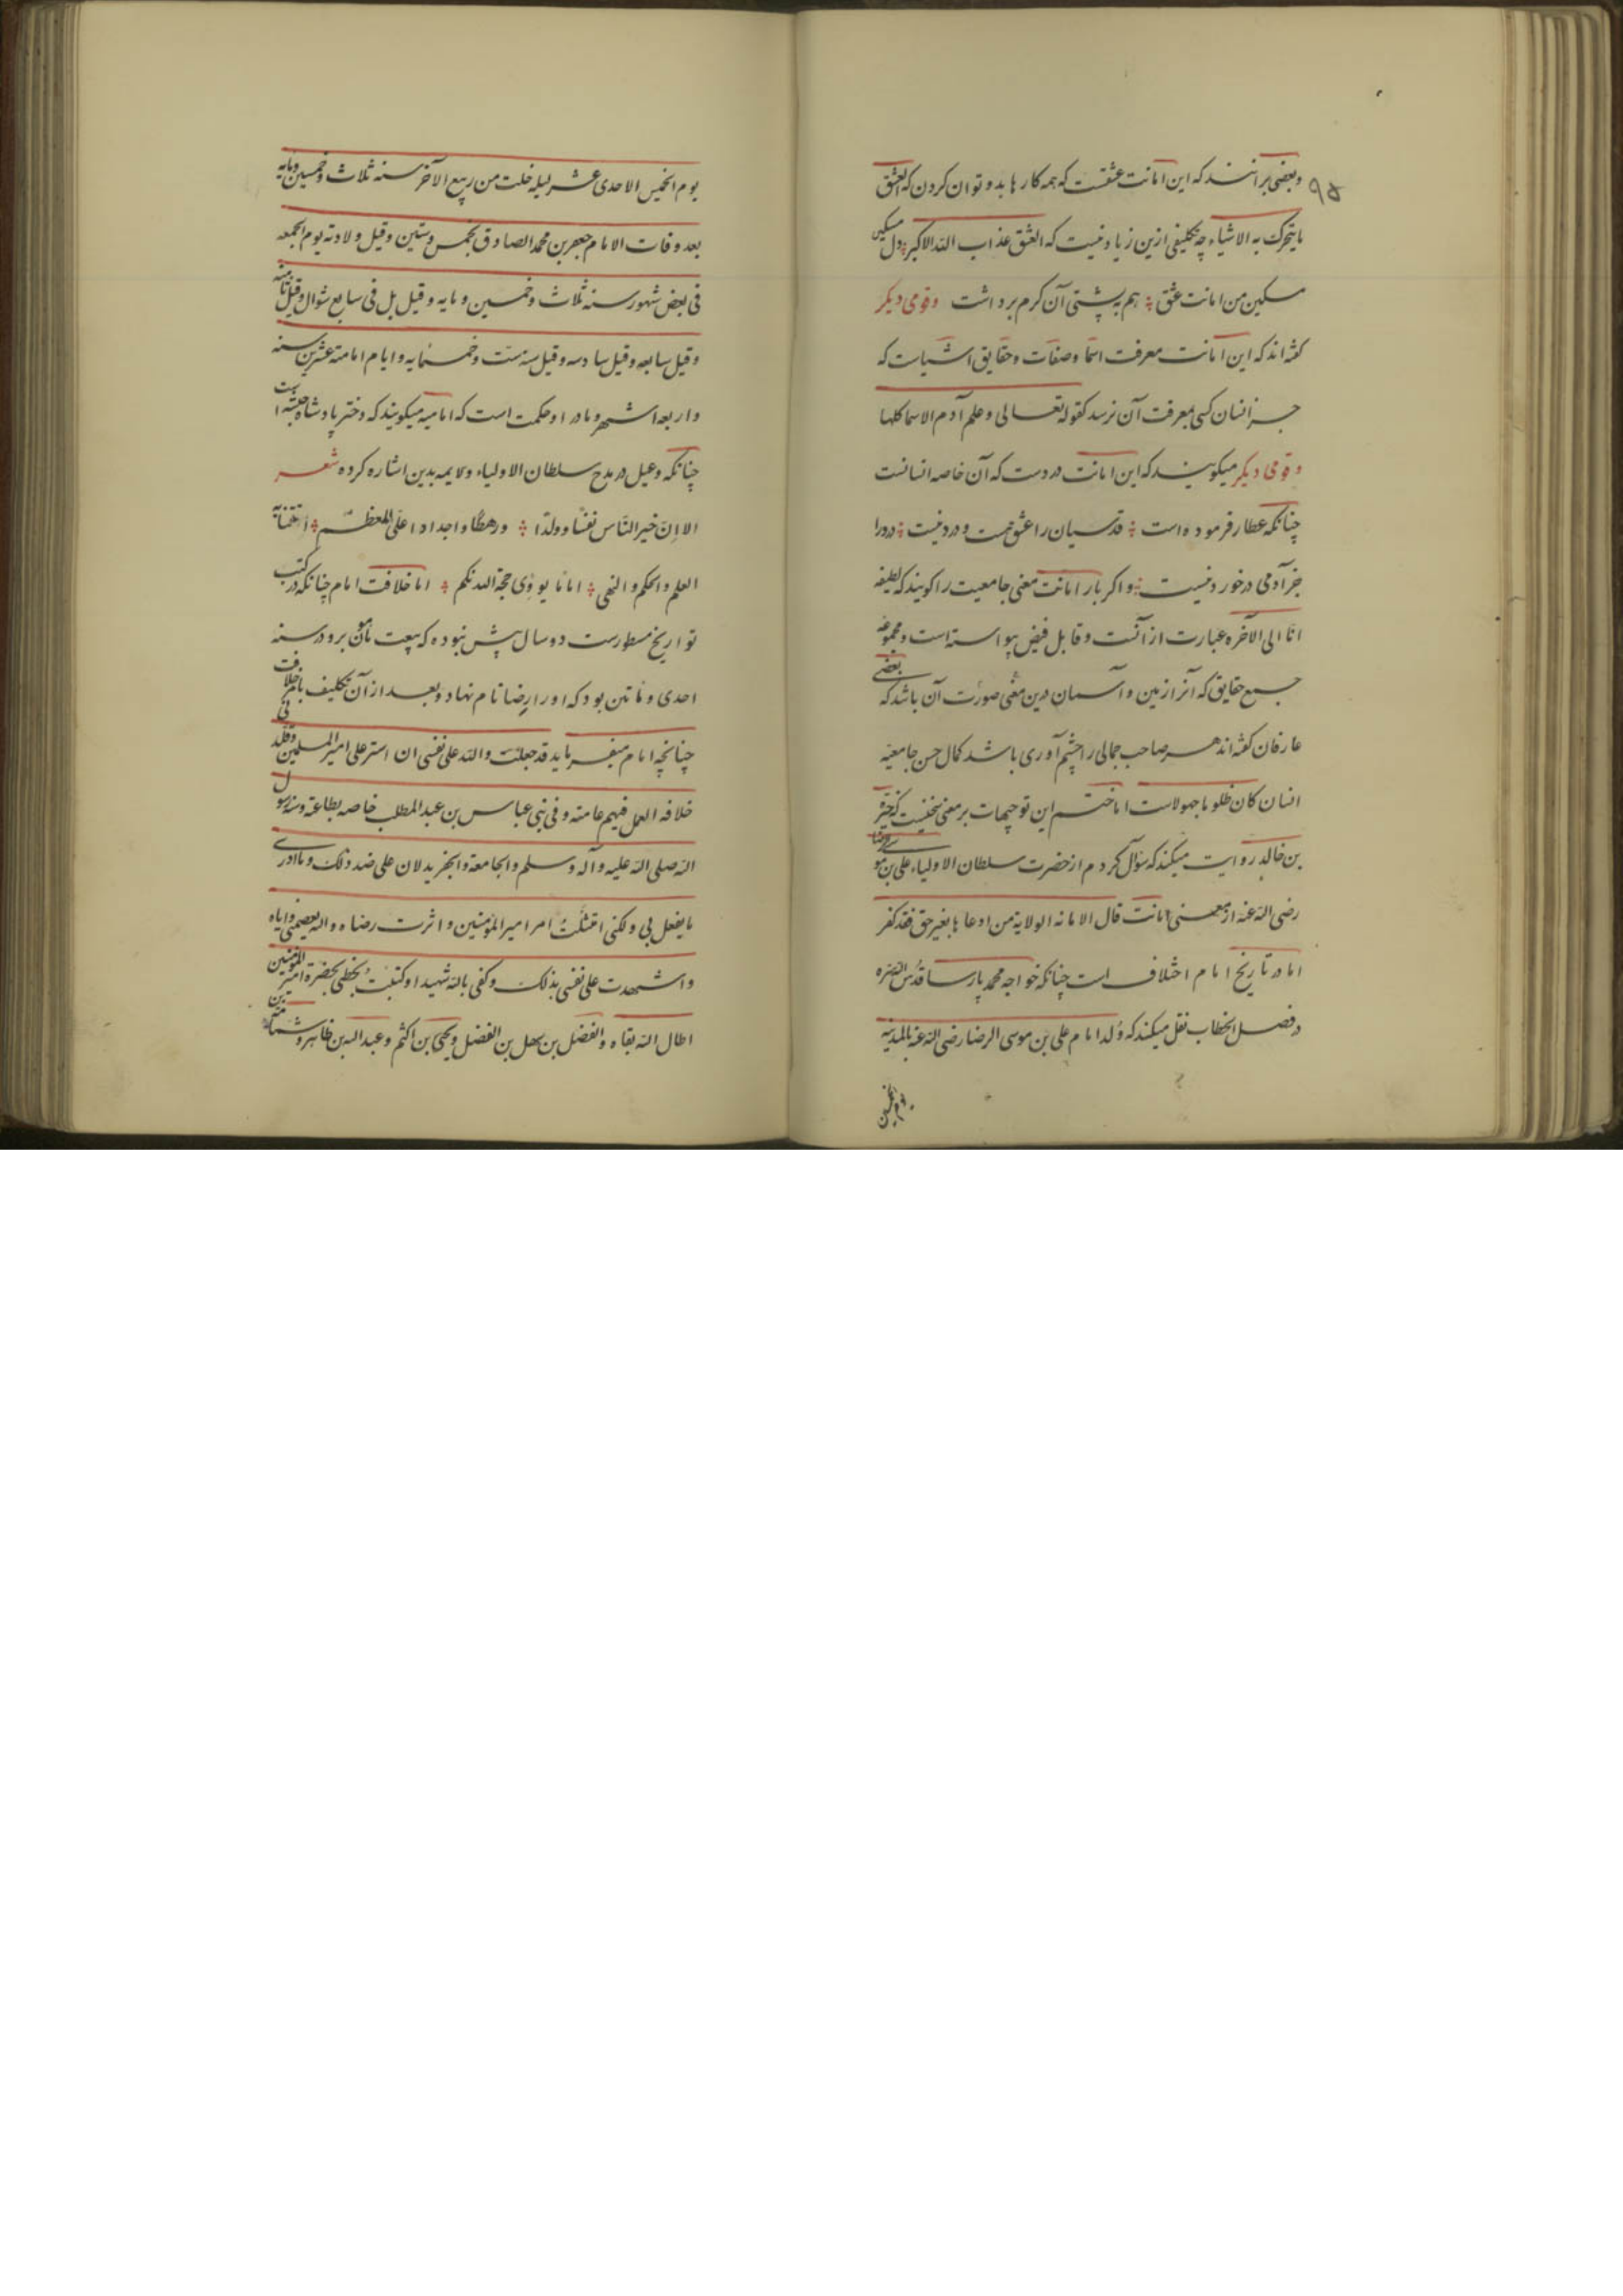 ۹۵
وبعضی برانند که این امانت عشقست که همه کارها بدو توان کردن که العشق
مایتحرک به الاشیاء چه تکلیفی ازین زیاد نیست که العشق عذاب الله الاکبر دل مسکین
مسکین من امانت عشق هم به پشتی آن کرم برداشت وقومی دیکر
کفته اند که این امانت معرفت اسما وصفات وحقایق اشیاست که
جز انسان کسی بمعرفت آن نرسد کقوله تعالی وعلم آدم الاسما کلها
وقومی دیکر میکویند که این امانت دردست که آن خاصه انسانست
چنانکه عطار فرموده است قدسیان را عشق هست ودرد نیست دردرا
جز آدمی درخورد نیست واکر بار امانت معنی جامعیت را کویند که لطیفه
انا الی الآخره عبارت از آنست وقابل فیض بیواسته است ومجموعه
جمیع حقایق که آنرا زمین وآسمان درین معنی صورت آن باشد که بعضی
عارفان کفته اند هر صاحب جمالی را چشم آوری باشد کمال حسن جامعیه
انسان کان ظلوما جهولاست اما ختم این توجیهات برمعنی نخستیست که
بن خالد روایت میکند که سؤال کردم از حضرت سلطان الاولیاء علی بن موسی رضا
رضی الله عنه از معنی امانت قال الامانه الولایة من ادعاها بغیر حق فقد کفر
اما در تاریخ امام اختلاف است چنانکه خواجه محمد پارسا قدس سره
در فصل الخطاب نقل میکند که ولد امام علی بن موسی الرضا رضی الله عنه بالمدینه
یوم الخمیس
یوم الخمیس الاحدی عشر لیله خلت من ربیع الآخر سنه ثلاث وخمسین ومایه
بعد وفات الامام جعفر بن محمد الصادق بخمس وستین وقیل ولادته یوم الجمعه
فی بعض شهور سنه ثلاث وخمسین ومایه وقیل بل فی سابع شوال وقیل ثامنه
وقیل سابعه وقیل سادسه وقیل سنه ست وخمسمایه وایام امامته عشرین سنه
واربعه اشهر ومادر او حکمت است که امامیه میکویند که دختر پادشاه حبشه است
چنانکه دعبل در مدح سلطان الاولیاء ولایمه بدین اشاره کرده شعر
الا ان خیر الناس نفسا وولدا ورهطا واجدادا علی المعظم اتتنا به
العلم والحکم والنهی اماما یوٴدی حجة الله نکتم اما خلافت امام چنانکه در کتب
تواریخ مسطورست دو سال پیش نبوده که بیعت مامون برو در سنه
احدی وماتین بود که اورا رضا نام نهاد وبعد از آن تکلیف بامر خلافت
چنانچه امام میفرماید قد جعلت والله علی نفسی ان استرعی امیر المسلمین وقلدنی
خلافه العمل فیهم عامته وفی بنی عباس بن عبد المطلب خاصه بطاعته وسنه رسول
الله صلی الله علیه وآله وسلم والجامعة والجفر یدلان علی ضد ذلک وما ادری
مایفعل بی ولکنی امتثلت امر امیر المؤمنین واثرت رضاه والله یعصمنی وایاه
واشهدت علی نفسی بذلک وکفی بالله شهیدا وکتبت بخطی بحضرة امیر المؤمنین
اطال الله بقاه والفضل بن سهل بن الفضل ویحیی بن اکثم وعبدالله بن طاهر